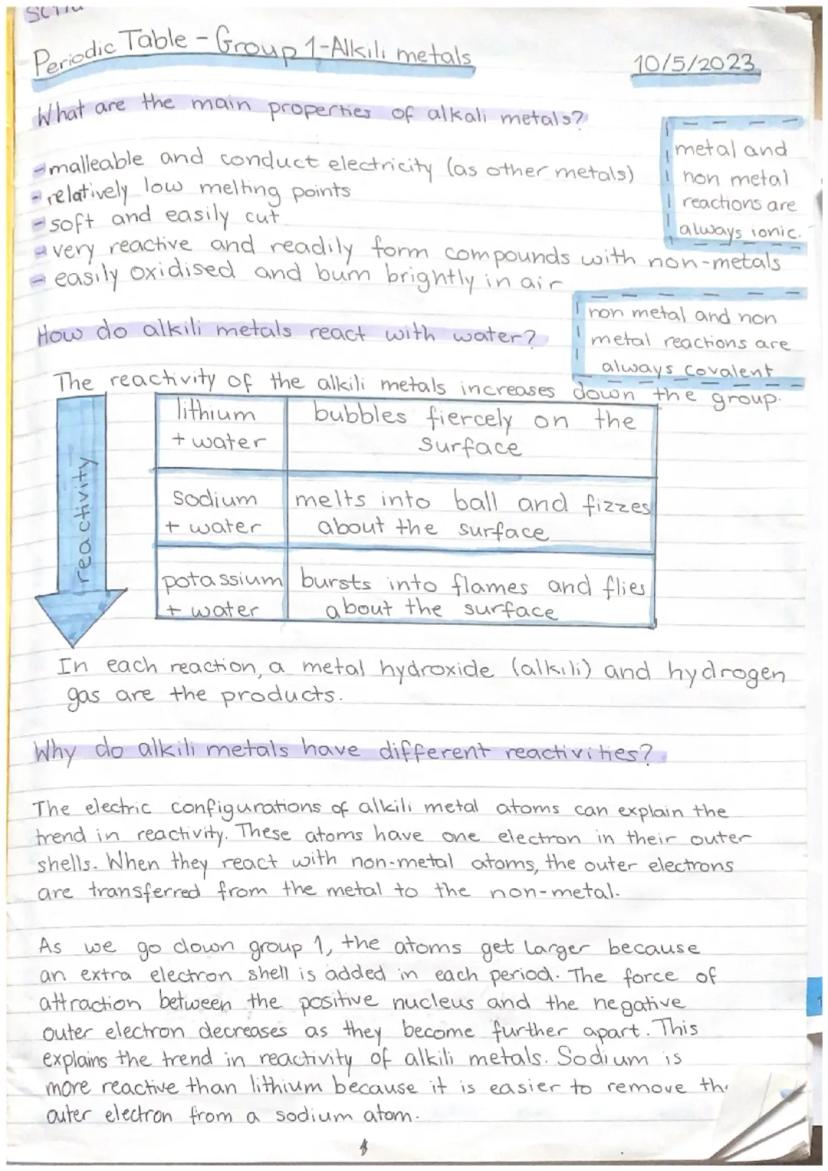 Periodic Table - Group 1 - Alkili metals
10/5/2023
What are the main properties of alkali metals?
metal and
non metal
reactions are
always ionic.
- malleable and conduct electricity (as other metals)
- relatively low melting points
- soft and easily cut
- very reactive and readily form compounds with non-metals
- easily oxidised and burn brightly in air
non metal and non
metal reactions are
always covalent
How do alkili metals react with water?
The reactivity of the alkili metals increases down the group.
reactivity
lithium
+ water
bubbles fiercely on the
surface
sodium
+ water
melts into ball and fizzes
about the surface
potassium
+ water
bursts into flames and flies
about the surface
In each reaction, a metal hydroxide (alkili) and hydrogen
gas are the products.
Why do alkili metals have different reactivities?
The electric configurations of alkili metal atoms can explain the
trend in reactivity. These atoms have one electron in their outer
shells. When they react with non-metal atoms, the outer electrons
are transferred from the metal to the non-metal.
As we go down group 1, the atoms get larger because
an extra electron shell is added in each period. The force of
attraction between the positive nucleus and the negative
outer electron decreases as they become further apart. This
explains the trend in reactivity of alkili metals. Sodium is
more reactive than lithium because it is easier to remove the
outer electron from a sodium atom.